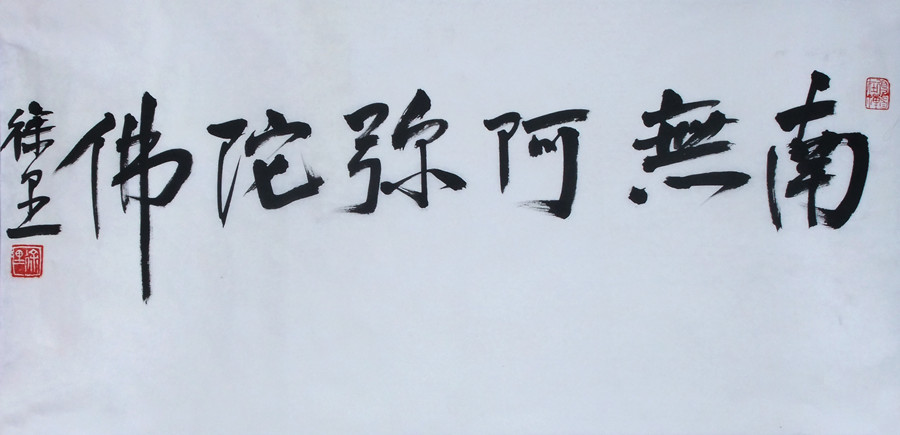 南無阿弥陀佛
徐里